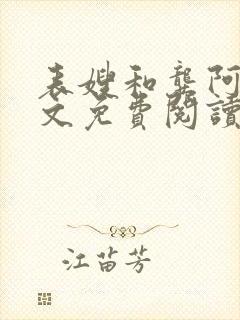 表嫂和龚阿
文免費閱讀
江苗芳